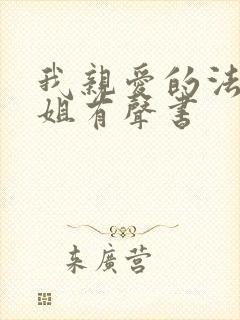 我親愛的法
姐有聲書
来廣营